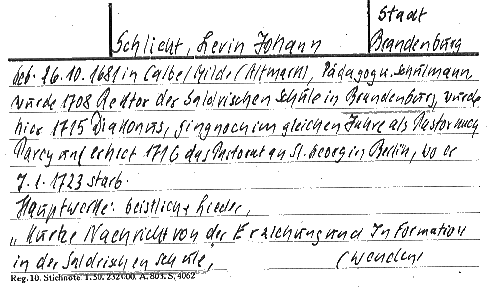 Stadt
Schlicht, Levin Johann Brandenburg
geb. 26.10.1681 in Calbe/Milde (Altmark), Pädagog u. Schulmann
wurde 1708 Rektor der Saldrischen Schule in Brandenburg, wurde
hier 1715 Diakonus, ging noch im gleichen Jahre als Pastor nach
Parey und erhielt 1716 das Pastorat an St. Georg in Berlin, wo er
7.1.1723 starb.
Hauptwerke: Geistliche Lieder,
„Kurtze Nachricht von der Erziehung und Information
in der Saldrischen Schule," (Wendene
Reg. 10. Stichnote 1. 50. 232000. A. 803. S. 4062